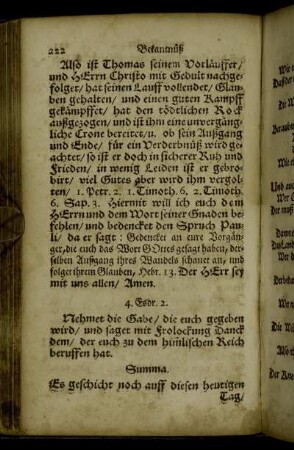 222 Bekantnüß
Also ist Thomas seinem Vorläuffer/
und HErrn Christo mit Gedult nachge-
folget/ hat seinen Lauff vollendet/ Glau-
ben gehalten/ und einen guten Kampff
gekämpffet/ hat den tödtlichen Rock
außgezogen/ und ist ihm eine unvergäng-
liche Crone bereitet/ u. ob sein Außgang
und Ende/ für ein Verderbnüß wird ge-
achtet/ so ist er doch in sicherer Ruh und
Frieden/ in wenig Leiden ist er gebro-
birt/ viel Gutes aber wird ihm vergol-
ten/ 1. Petr. 2. 1. Timoth. 6. 2. Timoth.
6. Sap. 3. Hiermit will ich euch dem
HErrn und dem Wort seiner Gnaden be-
fehlen/ und bedencket den Spruch Pau-
li/ da er sagt: Gedencket an eure Vorgän-
ger, die euch das Wort GOttes gesagt haben, der-
selben Außgang ihres Wandels schauet an, und
folget ihrem Glauben, Hebr. 13. Der HErr sey
mit uns allen/ Amen.
4. Esdr. 2.
Nehmet die Gabe/ die euch gegeben
wird/ und saget mit Frolockung Danck
dem/ der euch zu dem him̃lischen Reich
beruffen hat.
Summa.
Es geschicht noch auff diesen heutigen
Tag/